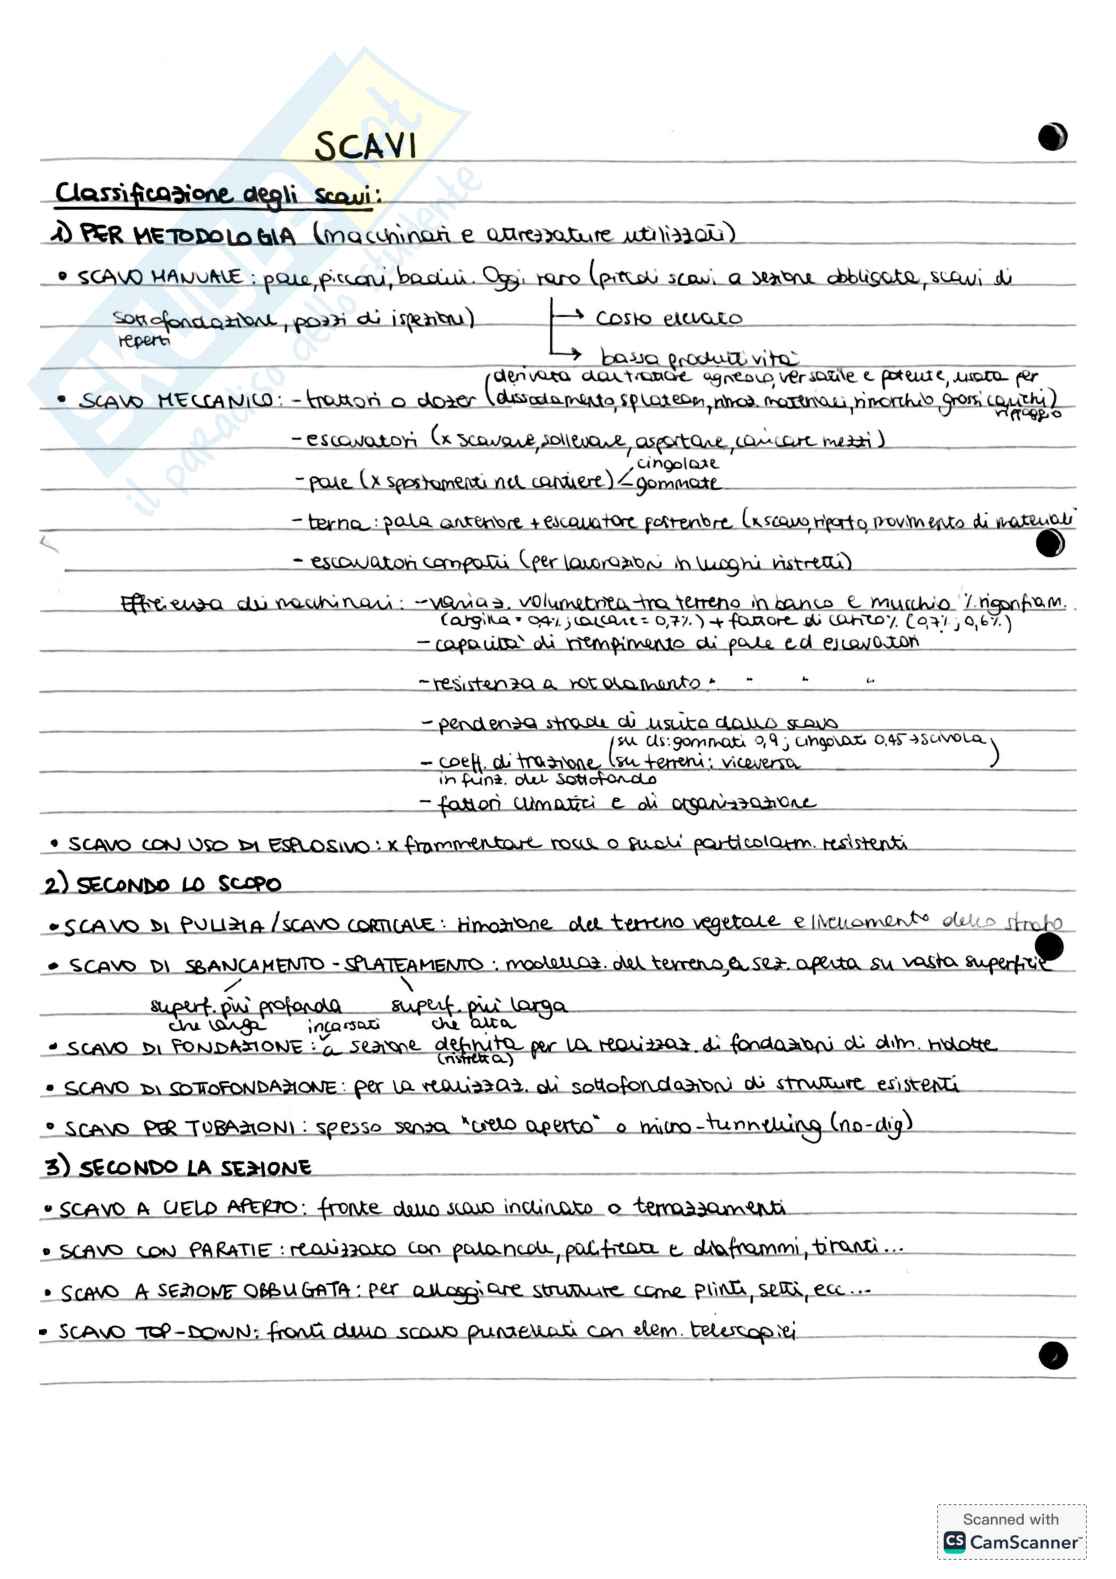 SCAVI
Classificazione degli scavi:
1) PER METODOLOGIA (macchinari e attrezzature utilizzati)
• SCAVO MANUALE: pale, picconi, badili. Oggi raro (piccoli scavi a sezione obbligata, scavi di
sottofondazione, pozzi di ispezione)
→ costo elevato
reperti
→ bassa produttività
(derivata dal trattore agricolo, versatile e potente, usata per
• SCAVO MECCANICO: - trattori o dozer (dissodamento, splateam, rimoz. materiali, rimorchio, grossi carichi)
- escavatori (x scavare, sollevare, asportare, caricare mezzi)
cingolate
- pale (x spostamenti nel cantiere) < gommate
- terna: pala anteriore + escavatore posteriore (x scavo, riporto, movimento di materiali
- escavatori compatti (per lavorazioni in luoghi ristretti)
Efficienza dei macchinari: - variaz. volumetrica tra terreno in banco e mucchio % rigonfiam.
(argilla = 0,4%; calcare = 0,7%) + fattore di carico % (0,7%; 0,6%)
- capacità di riempimento di pale ed escavatori
- resistenza a rotolamento " " " "
- pendenza strade di uscita dallo scavo
(su cls: gommati 0,9; cingolati 0,45 → scivola)
- coeff. di trazione (su terreni: viceversa
in funz. del sottofondo
- fattori climatici e di organizzazione
• SCAVO CON USO DI ESPLOSIVO: x frammentare rocce o suoli particolarm. resistenti
2) SECONDO LO SCOPO
• SCAVO DI PULIZIA/SCAVO CORTICALE: rimozione del terreno vegetale e livellamento dello strato
• SCAVO DI SBANCAMENTO - SPLATEAMENTO: modellaz. del terreno, a sez. aperta su vasta superficie
superf. più profonda superf. più larga
che larga incassati che alta
• SCAVO DI FONDAZIONE: a sezione definita per la realizzaz. di fondazioni di dim. ridotte
(ristretta)
• SCAVO DI SOTTOFONDAZIONE: per la realizzaz. di sottofondazioni di strutture esistenti
• SCAVO PER TUBAZIONI: spesso senza "cielo aperto" o micro-tunnelling (no-dig)
3) SECONDO LA SEZIONE
• SCAVO A CIELO APERTO: fronte dello scavo inclinato o terrazzamenti
• SCAVO CON PARATIE: realizzato con palancole, palificate e diaframmi, tiranti...
• SCAVO A SEZIONE OBBLIGATA: per alloggiare strutture come plinti, setti, ecc...
• SCAVO TOP-DOWN: fronti dello scavo puntellati con elem. telescopici
SKUOLA.net
il paradiso dello studente
Scanned with
CS CamScanner